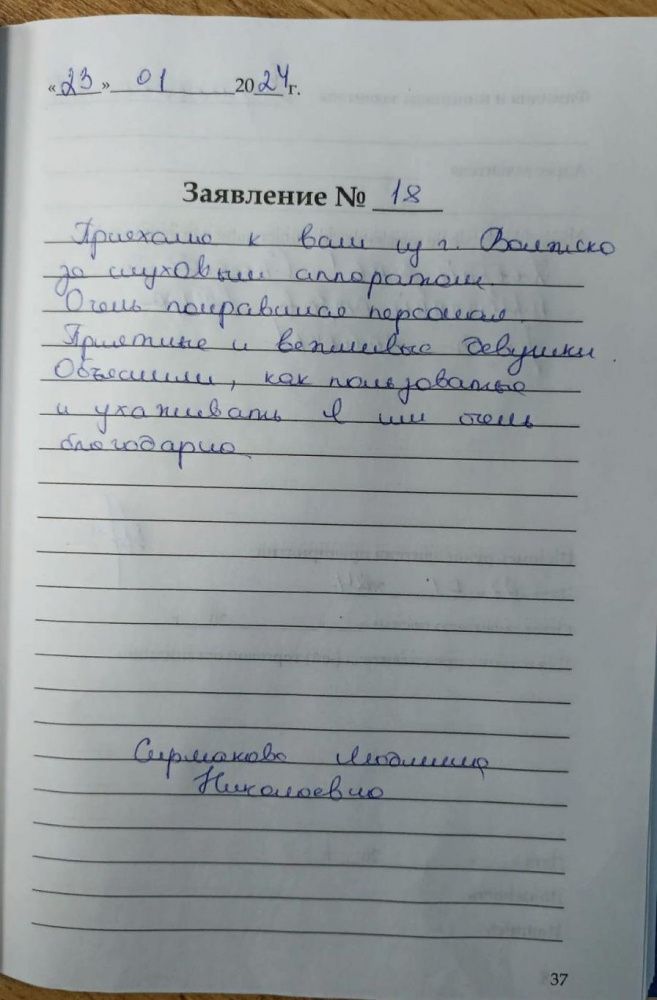 «23» 01 2024 г.
Заявление № 18
Приехала к вам из г. Волжска
за слуховым аппаратом.
Очень понравился персонал
Приятные и вежливые девушки.
Объяснили, как пользоваться
и ухаживать Я им очень
благодарна.
Сирмакова Людмила
Николаевна
37